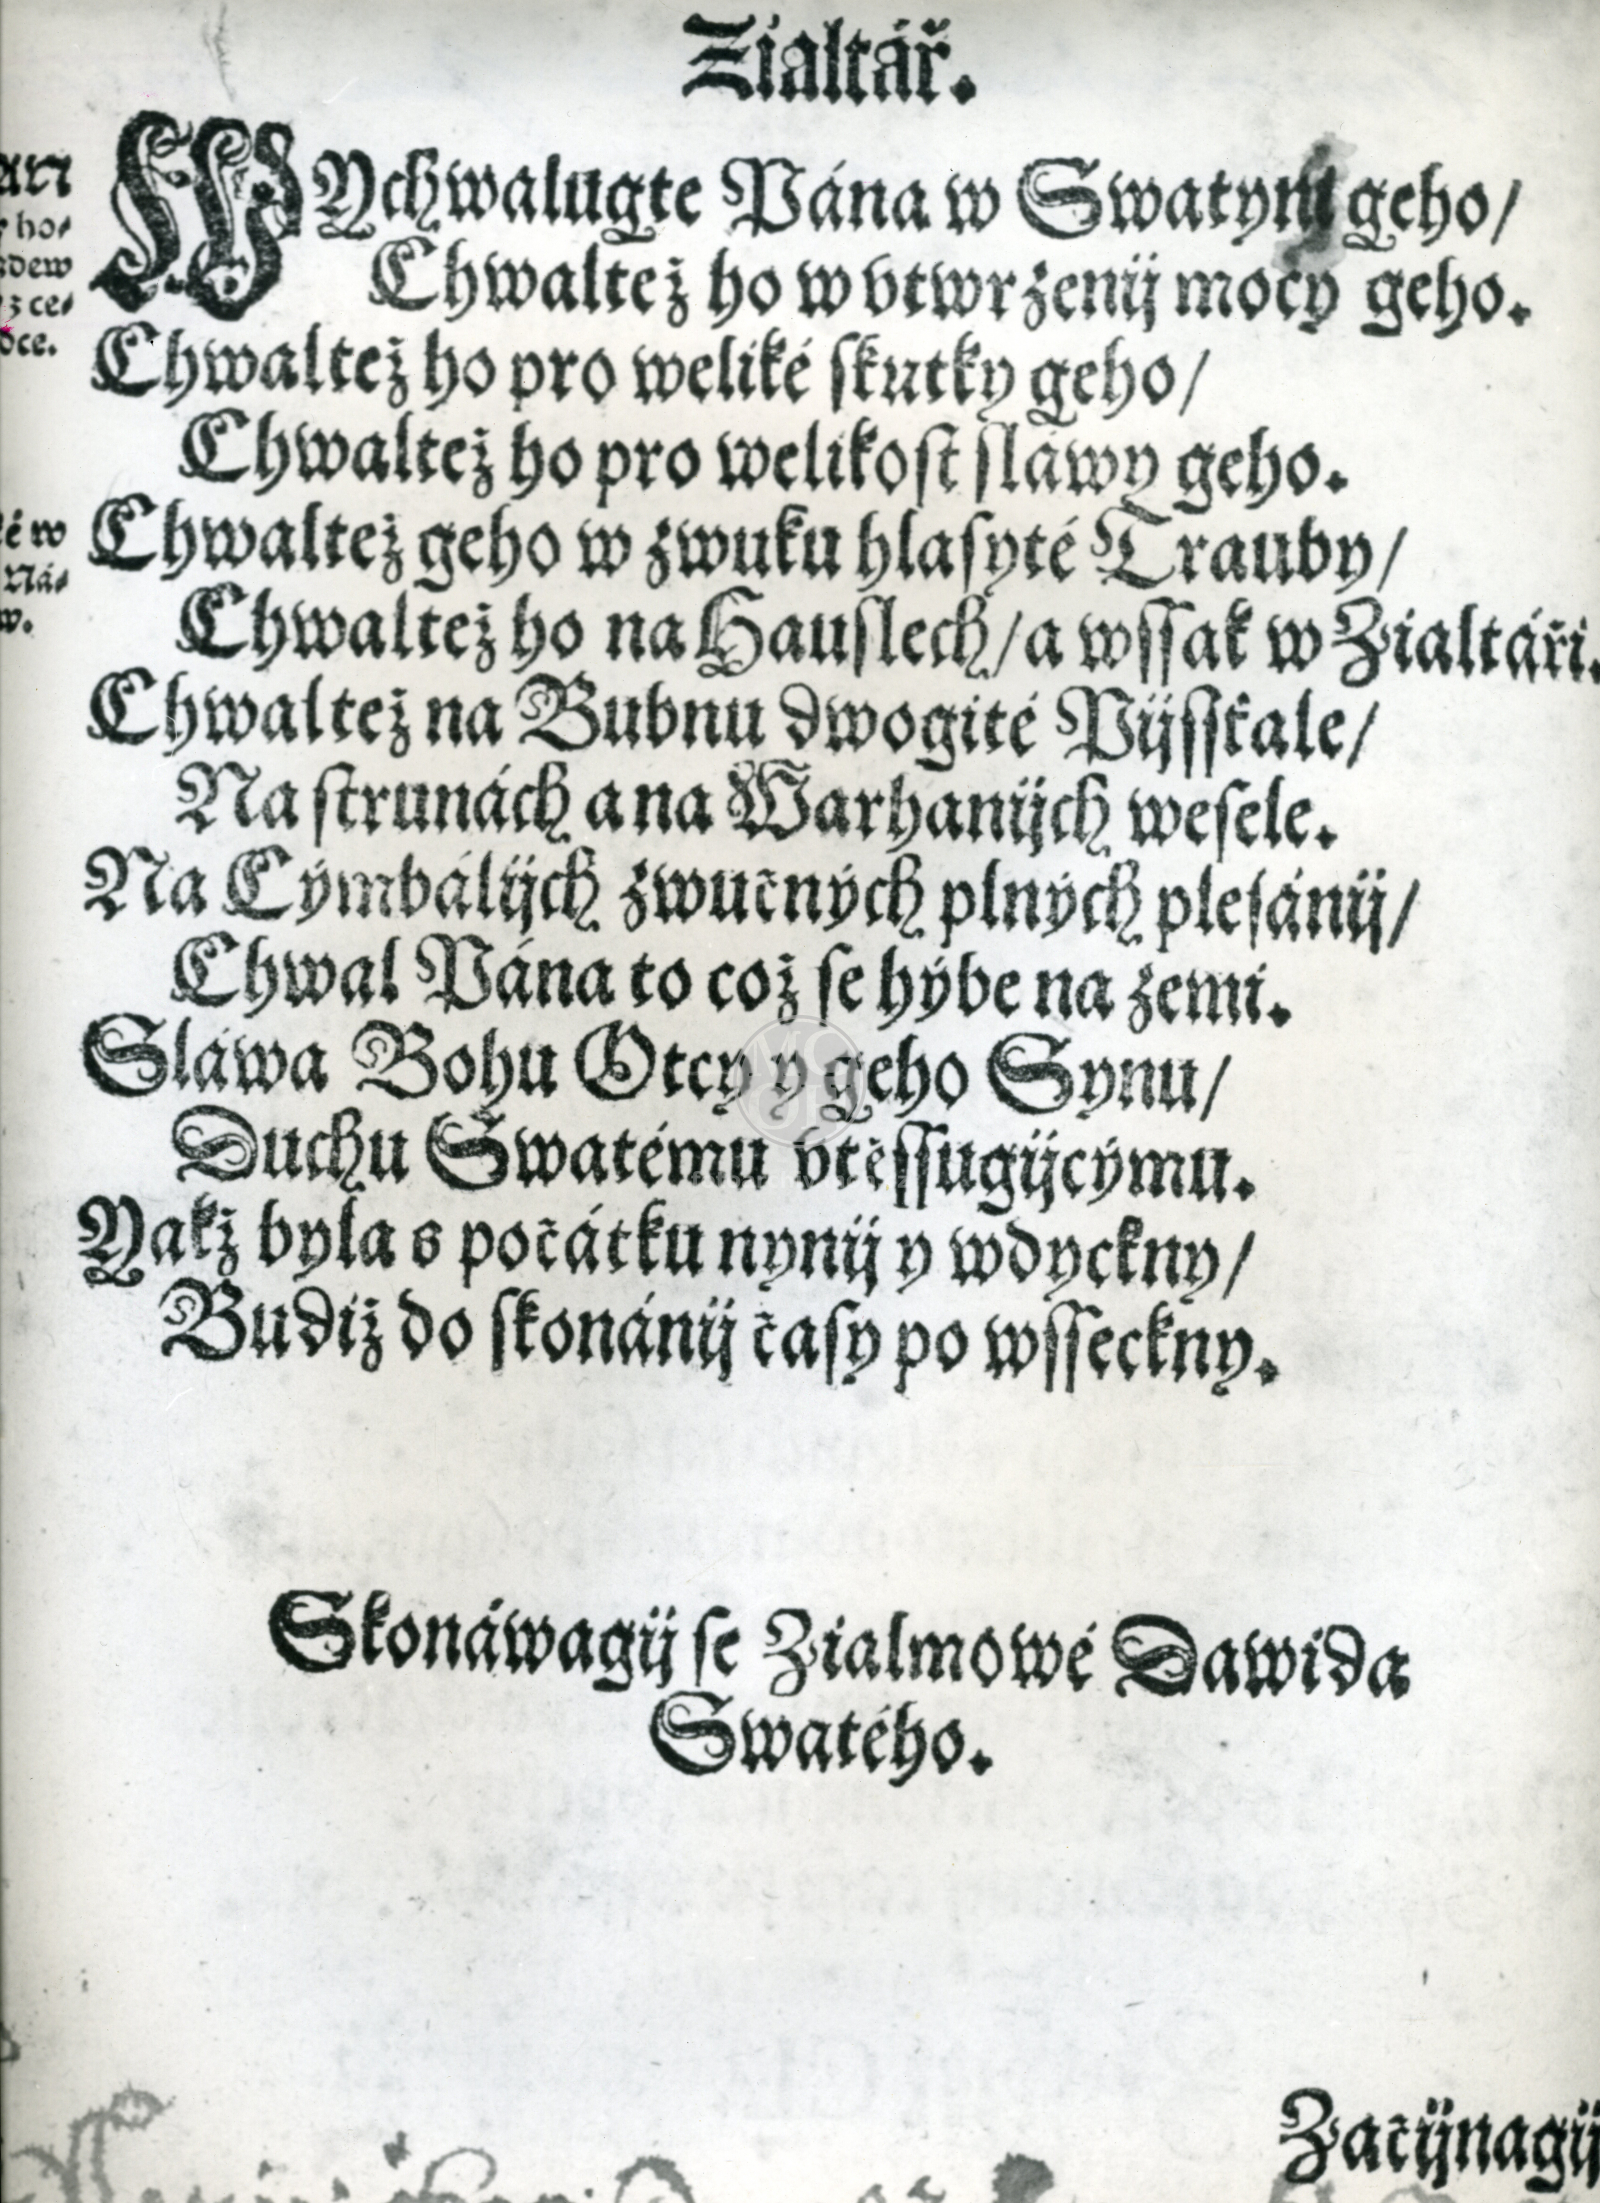 Zialtář.
WYchwalugte Pána w Swatym geho/
Chwaltež ho w vtwrzenij mocy geho.
Chwaltež ho pro weliké skutky geho/
Chwaltež ho pro welikost sláwy geho.
Chwaltež geho w zwuku hlasyté Trauby/
Chwaltež ho na Hauslech/ a wssak w Zialtáři.
Chwaltež na Bubnu dwogité Pijsstale/
Na strunách a na Warhanijch wesele.
Na Cýmbálijch zwučných plných plesánij/
Chwal Pána to což se hýbe na zemi.
Sláwa Bohu Otcy y geho Synu/
Duchu Swatému vtěssugijcýmu.
Yakž byla s počátku nynij y wdyckny/
Budiž do skonánij časy po wsseckny.
Skonáwagij se Zialmowé Dawida
Swatého.
Začijnagij